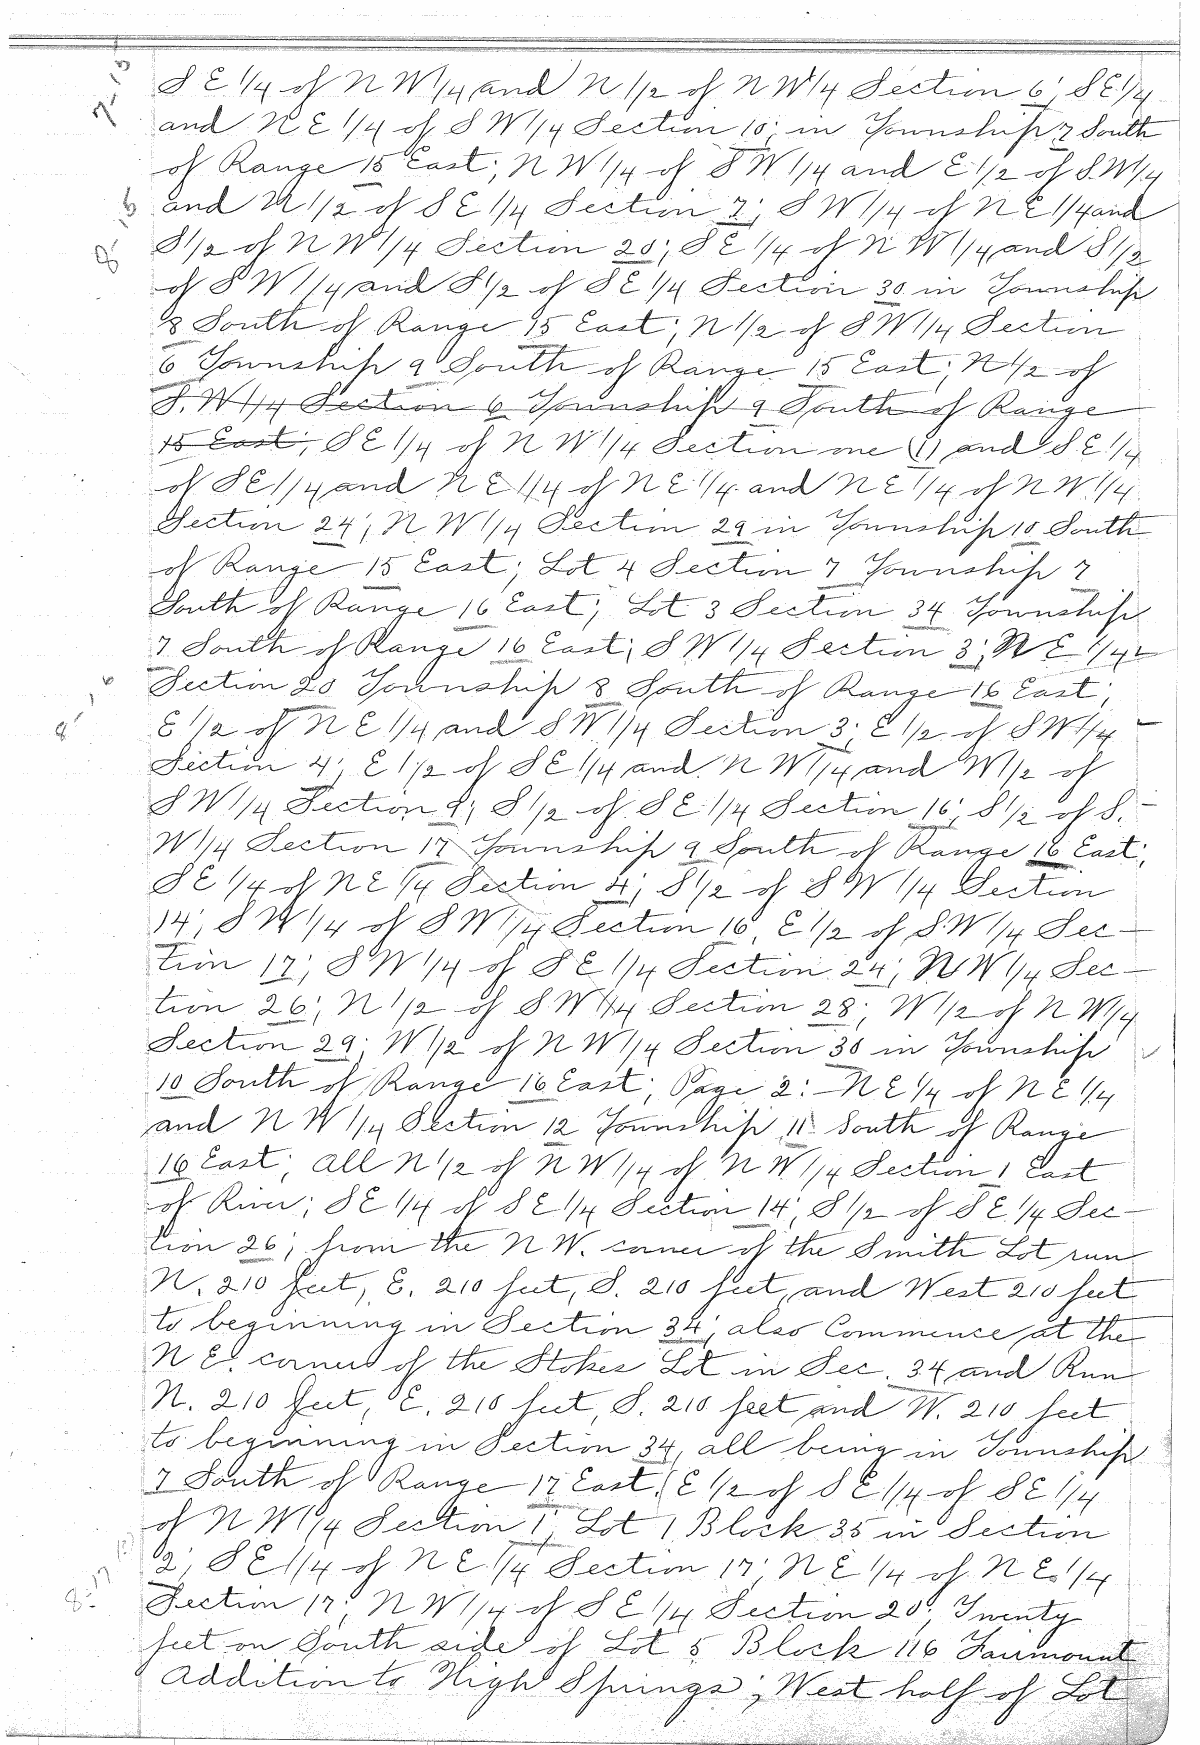 7-15
S E 1/4 of N W 1/4 and N 1/2 of N W 1/4 Section 6; S E 1/4
and N E 1/4 of S W 1/4 Section 10; in Township 7 South
of Range 15 East; N W 1/4 of S W 1/4 and E 1/2 of S.W 1/4
8-15
and N 1/2 of S E 1/4 Section 7; S W 1/4 of N E 1/4 and
S 1/2 of N W 1/4 Section 20; S E 1/4 of N W 1/4 and S 1/2
of S W 1/4 and S 1/2 of S E 1/4 Section 30 in Township
8 South of Range 15 East; N 1/2 of S W 1/4 Section
6 Township 9 South of Range 15 East; N 1/2 of
S. W 1/4 Section 6 Township 9 South of Range
15 East; S E 1/4 of N W 1/4 Section one (1) and S E 1/4
of S E 1/4 and N E 1/4 of N E 1/4 and N E 1/4 of N W 1/4
Section 24; N W 1/4 Section 29 in Township 10 South
of Range 15 East; Lot 4 Section 7 Township 7
South of Range 16 East; Lot 3 Section 34 Township
7 South of Range 16 East; S W 1/4 Section 3; N E 1/4
8-16
Section 20 Township 8 South of Range 16 East;
E 1/2 of N E 1/4 and S W 1/4 Section 3; E 1/2 of S W 1/4
Section 4; E 1/2 of S E 1/4 and N W 1/4 and W 1/2 of
S W 1/4 Section 9; S 1/2 of S E 1/4 Section 16; S 1/2 of S.
W 1/4 Section 17 Township 9 South of Range 16 East;
S E 1/4 of N E 1/4 Section 4; S 1/2 of S W 1/4 Section
14; S W 1/4 of S W 1/4 Section 16, E 1/2 of S.W 1/4 Sec-
tion 17; S W 1/4 of S E 1/4 Section 24; N W 1/4 Sec-
tion 26; N 1/2 of S W 1/4 Section 28; W 1/2 of N W 1/4
Section 29; W 1/2 of N W 1/4 Section 30 in Township
10 South of Range 16 East; Page 2:- N E 1/4 of N E 1/4
and N W 1/4 Section 12 Township 11 South of Range
16 East; all N 1/2 of N W 1/4 of N W 1/4 Section 1 East
of River; S E 1/4 of S E 1/4 Section 14; S 1/2 of S E 1/4 Sec-
tion 26; from the N W. corner of the Smith Lot run
N. 210 feet, E. 210 feet, S. 210 feet, and West 210 feet
to beginning in Section 34; also Commence at the
N E. corner of the Stokes Lot in Sec. 34 and Run
N. 210 feet, E. 210 feet, S. 210 feet and W. 210 feet
to beginning in Section 34, all being in Township
7 South of Range 17 East. E 1/2 of S E 1/4 of S E 1/4
of N W 1/4 Section 1; Lot 1 Block 35 in Section
2; S E 1/4 of N E 1/4 Section 17; N E 1/4 of N E. 1/4
8-17
Section 17; N W 1/4 of S E 1/4 Section 20; Twenty
feet on South side of Lot 5 Block 116 Fairmount
Addition to High Springs; West half of Lot